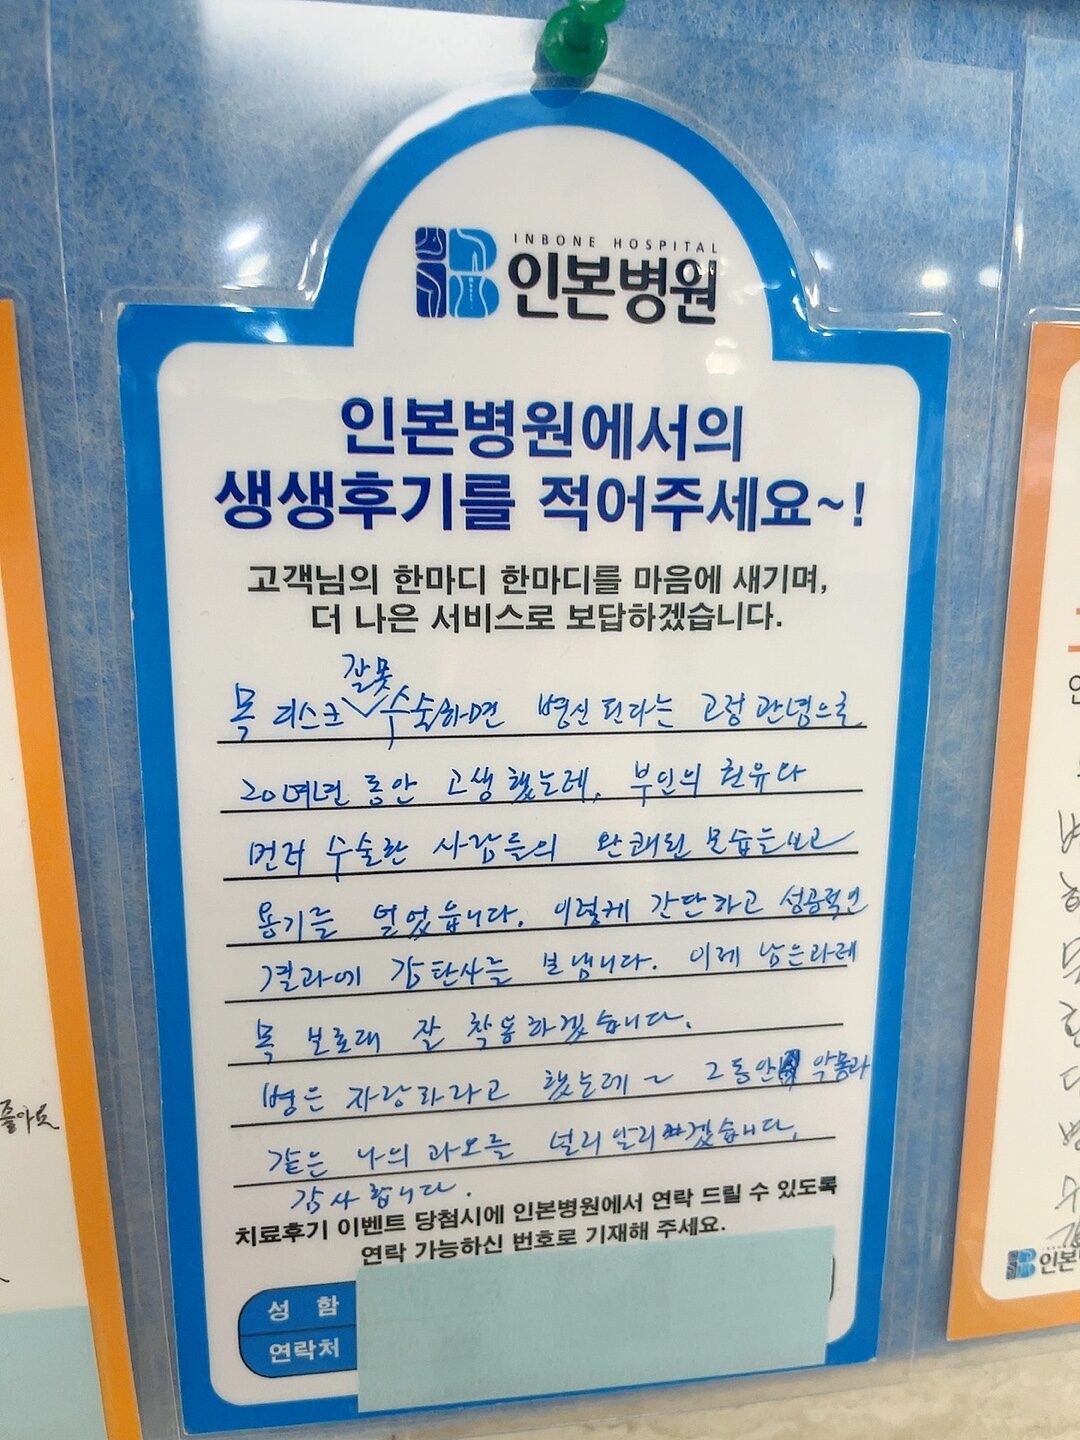 INBONE HOSPITAL
인본병원
인본병원에서의
생생후기를 적어주세요~!
고객님의 한마디 한마디를 마음에 새기며,
더 나은 서비스로 보답하겠습니다.
잘못
목 디스크 수술하면 병신 된다는 고정관념으로
20여년 동안 고생했는데, 부인의 권유와
먼저 수술한 사람들의 완쾌된 모습을 보고
용기를 얻었읍니다. 이렇게 간단하고 성공적인
결과에 감탄사를 보냅니다. 이제 남은과제
목 보호대 잘 착용하겠습니다.
병은 자랑하라고 했는데~ 그동안 악몽과
같은 나의 과오를 널리 알리겠습니다.
감사합니다.
치료후기 이벤트 당첨시에 인본병원에서 연락 드릴 수 있도록
연락 가능하신 번호로 기재해 주세요.
성 함
연락처
좋아요
인본